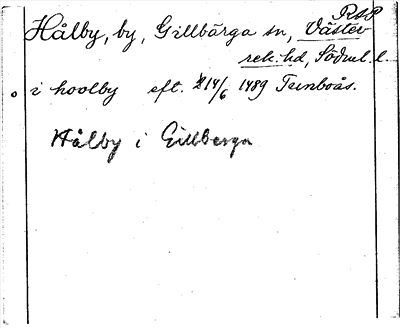 RAP
Hålby, by, Gillbärga sn, Väster
rek. hd, Södml. l.
i hoolby eft. 14/6 1489 Tunboås.
Hålby i Gillberga